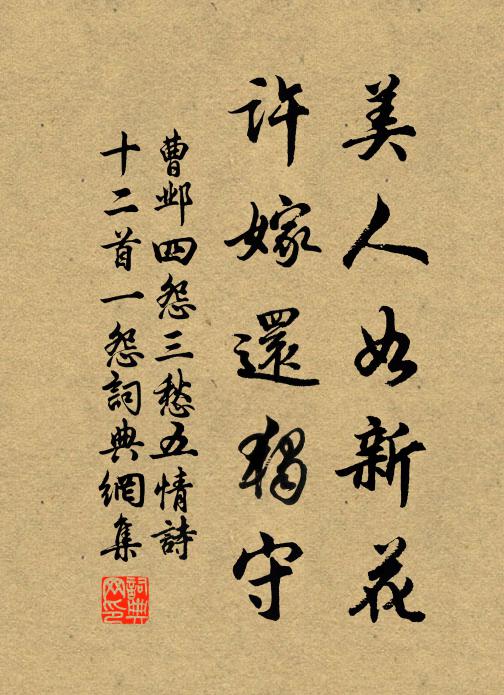 美人如新花
許嫁還獨守
曹邺四怨三愁五情詩
十二首一怨詞典網集
詞典网印